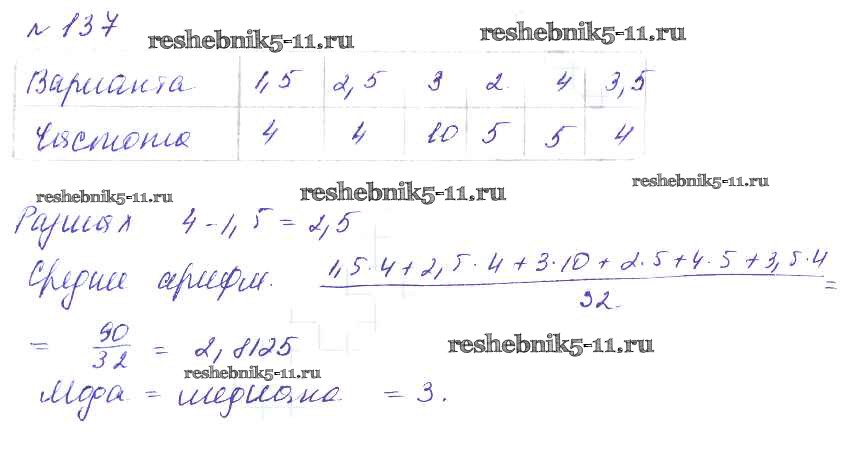 № 137
reshebnik5-11.ru reshebnik5-11.ru
Варианта 1,5 2,5 3 2 4 3,5
Частота 4 4 10 5 5 4
reshebnik5-11.ru reshebnik5-11.ru reshebnik5-11.ru
Размах 4 - 1,5 = 2,5
Средние арифм. (1,5·4 + 2,5·4 + 3·10 + 2·5 + 4·5 + 3,5·4)/32 =
= 90/32 = 2,8125 reshebnik5-11.ru
reshebnik5-11.ru
Мода = медиана = 3.